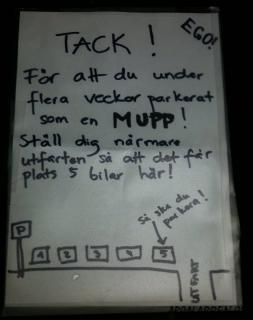 TACK!
EGO!
För att du under
flera veckor parkerat
som en MUPP!
Ställ dig närmare
utfarten så att det får
plats 5 bilar här!
Så ska du
parkera!
P
1 2 3 4 5
UTFART